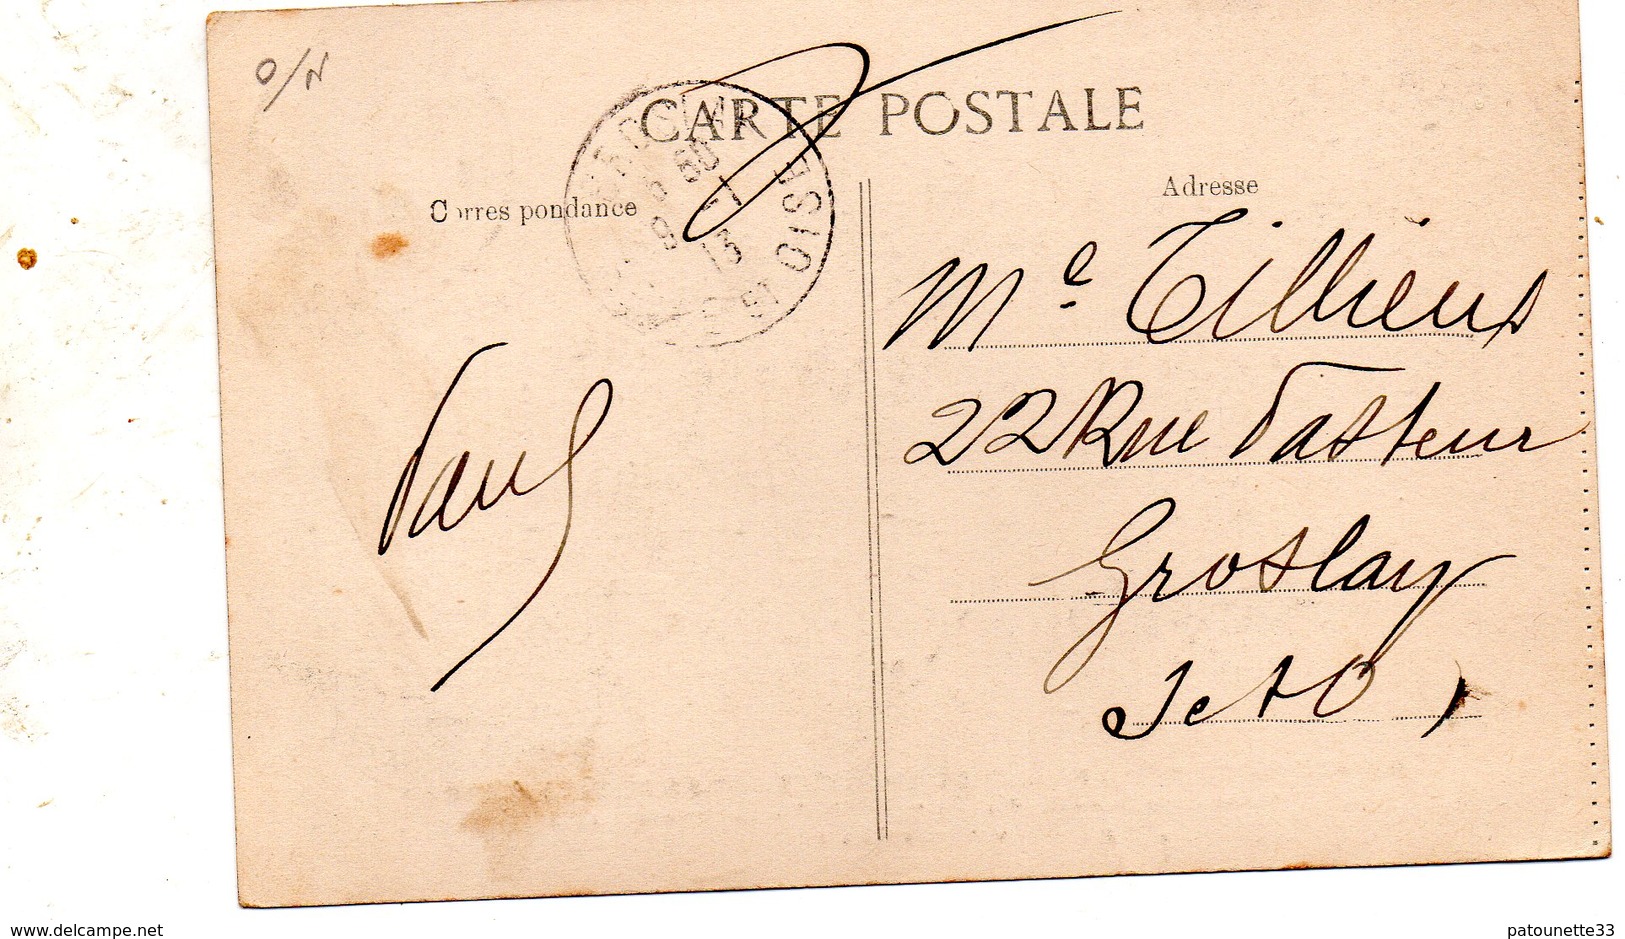 O/N
CARTE POSTALE
Correspondance
Adresse
OISE
13
Paul
Me Tillieux
22 Rue Pasteur
Groslay
S et O
www.delcampe.net
patounette33